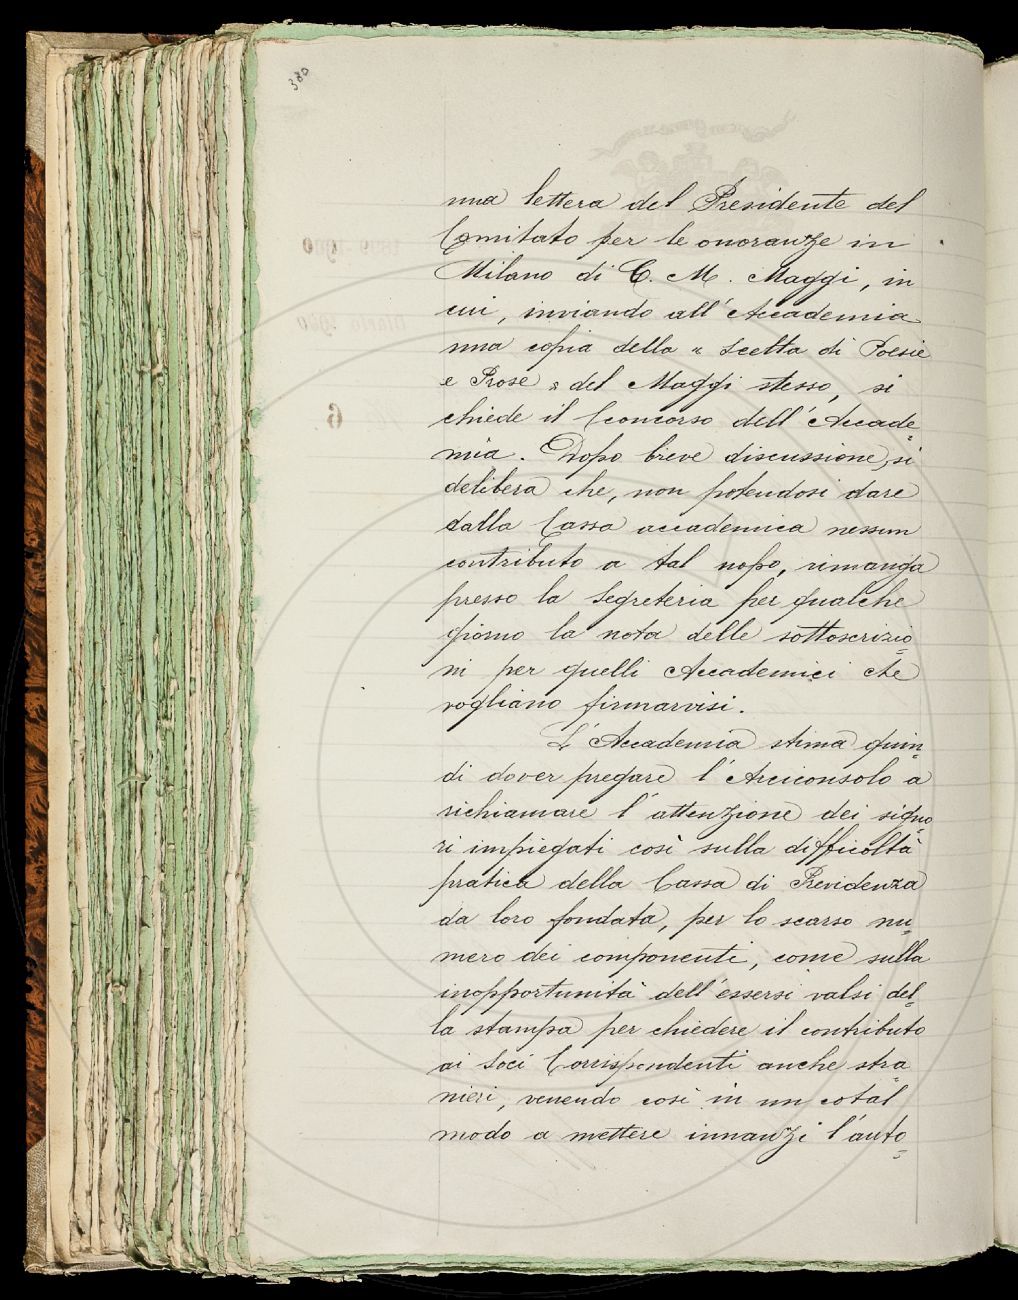 380
una lettera del Presidente del
Comitato per le onoranze in
Milano di C. M. Maggi, in
cui, inviando all'Accademia
una copia della « Scelta di Poesie
e Prose » del Maggi stesso, si
chiede il Concorso dell'Accade=
mia. Dopo breve discussione, si
delibera che, non potendosi dare
dalla Cassa accademica nessun
contributo a tal uopo, rimanga
presso la Segreteria per qualche
giorno la nota delle sottoscrizio=
ni per quelli Accademici che
vogliano firmarvisi.
L'Accademia stima quin=
di dover pregare l'Arciconsolo a
richiamare l'attenzione dei signo=
ri impiegati così sulla difficoltà
pratica della Cassa di Previdenza
da loro fondata, per lo scarso nu=
mero dei componenti, come sulla
inopportunità dell'essersi valsi del=
la stampa per chiedere il contributo
ai Soci Corrispondenti anche stra=
nieri, venendo così in un cotal
modo a mettere innanzi l'auto=